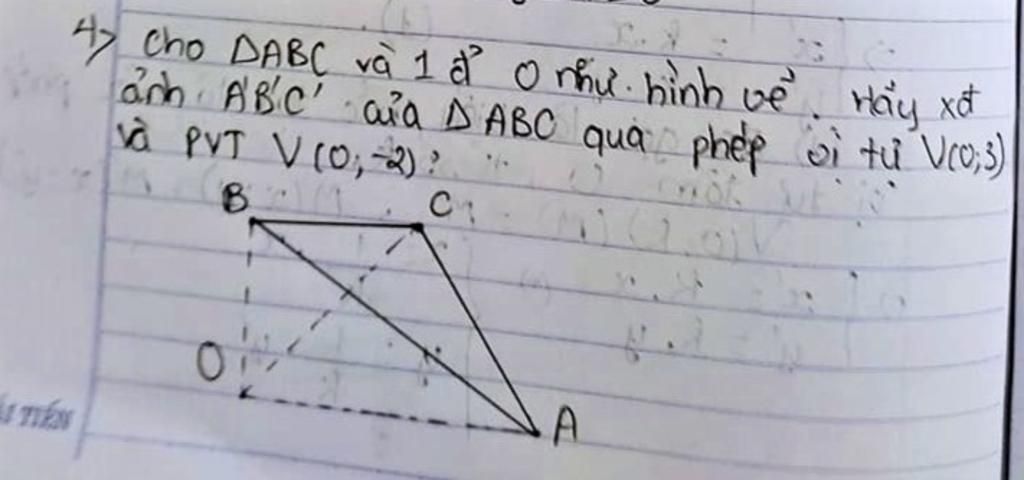 4> Cho ΔABC và 1 đ² O như hình vẽ. Hãy xđ
ảnh A'B'C' của ΔABC qua phép vị tự V(O;3)
và PVT V(O;-2)?
B C
O
A
TIẾN